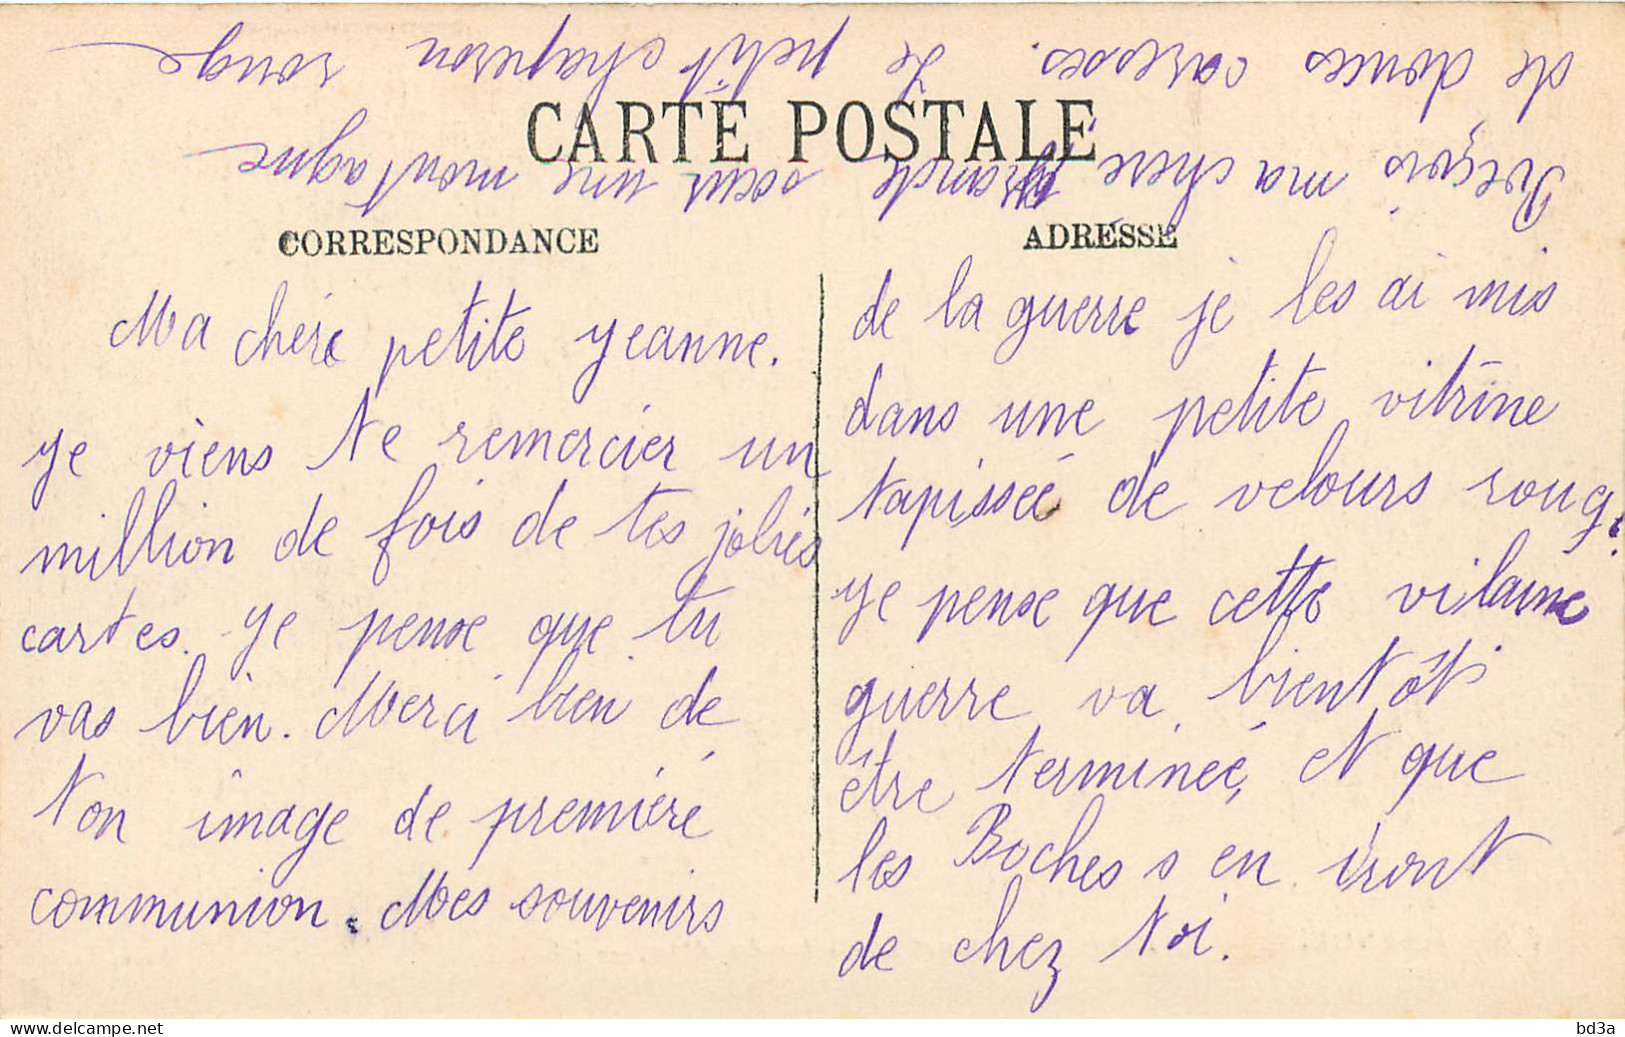 CARTE POSTALE
CORRESPONDANCE
Ma chére petite Jeanne.
Je viens te remercier un
million de fois de tes jolies
cartes. Je pense que tu
vas bien. Merci bien de
ton image de premiére
communion. Mes souvenirs
ADRESSE
de la guerre je les ai mis
dans une petite vitrine
tapissée de velours rouge.
Je pense que cette vilaine
guerre va bientôt
être terminée, et que
les Boches s en iront
de chez toi.
Reçois ma chère grande sœur une montagne
de douces caresses. Le petit chaperon rouge
www.delcampe.net
bd3a